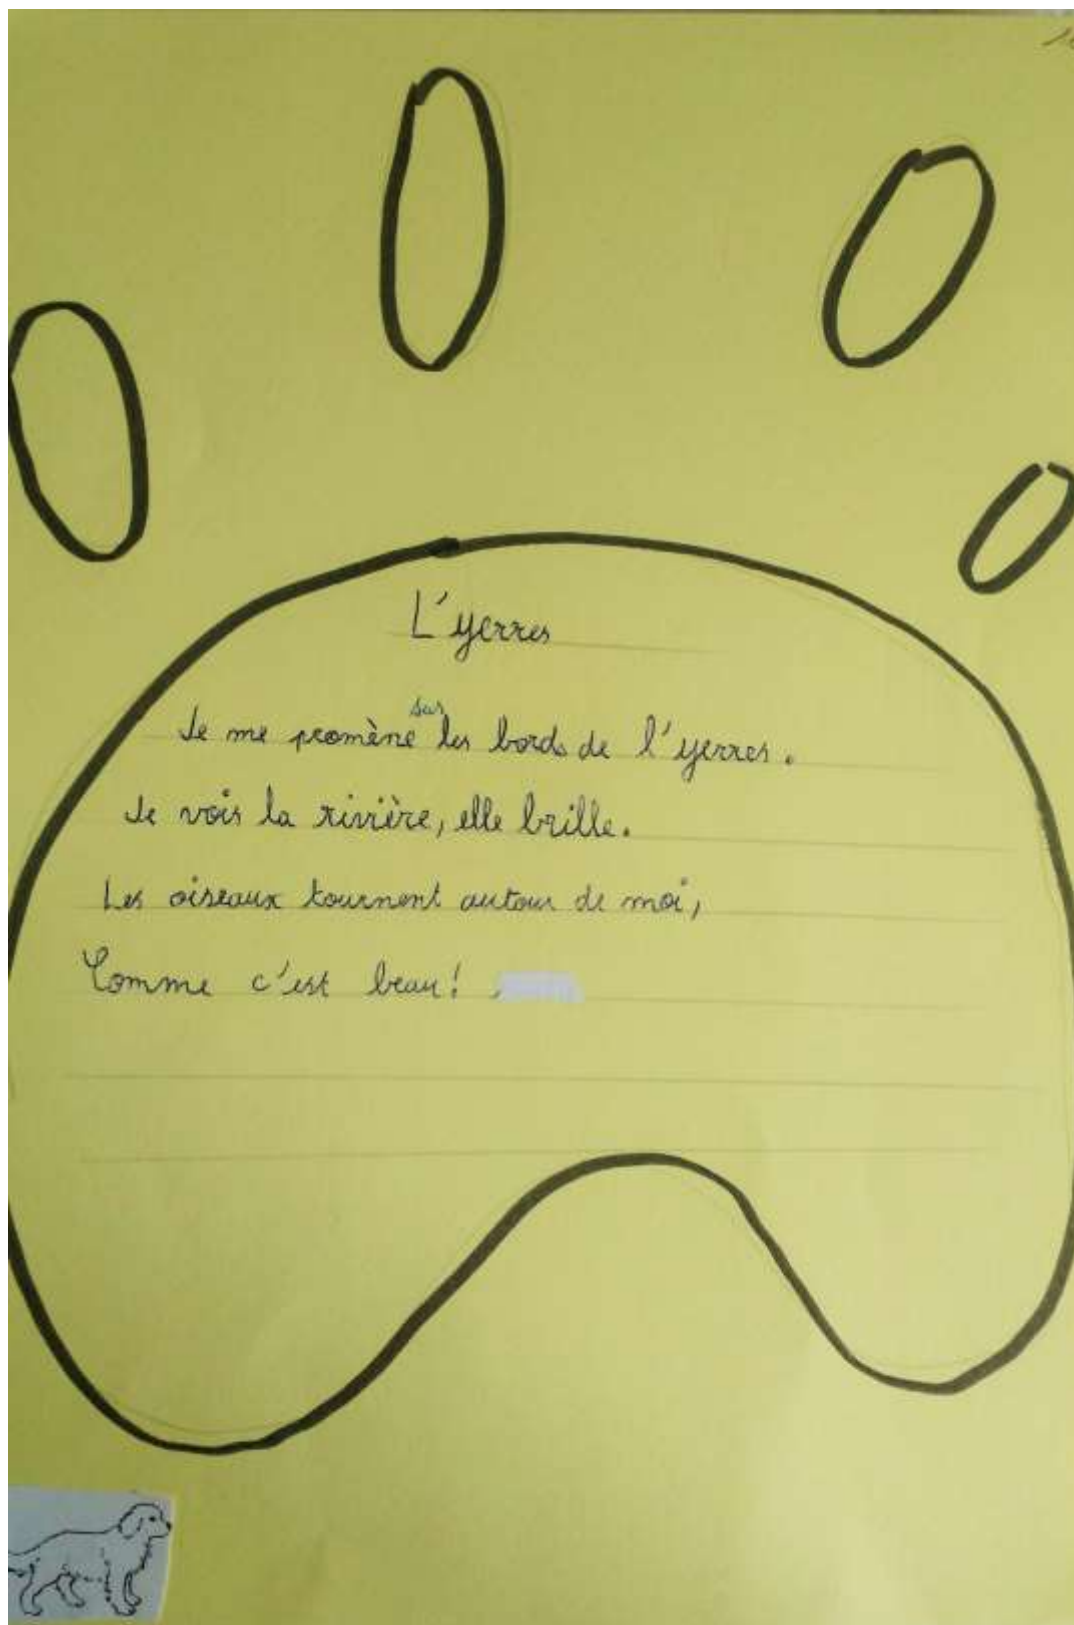 L'yerres
Je me promène sur les bords de l'yerres.
Je vois la rivière, elle brille.
Les oiseaux tournent autour de moi,
Comme c'est beau!